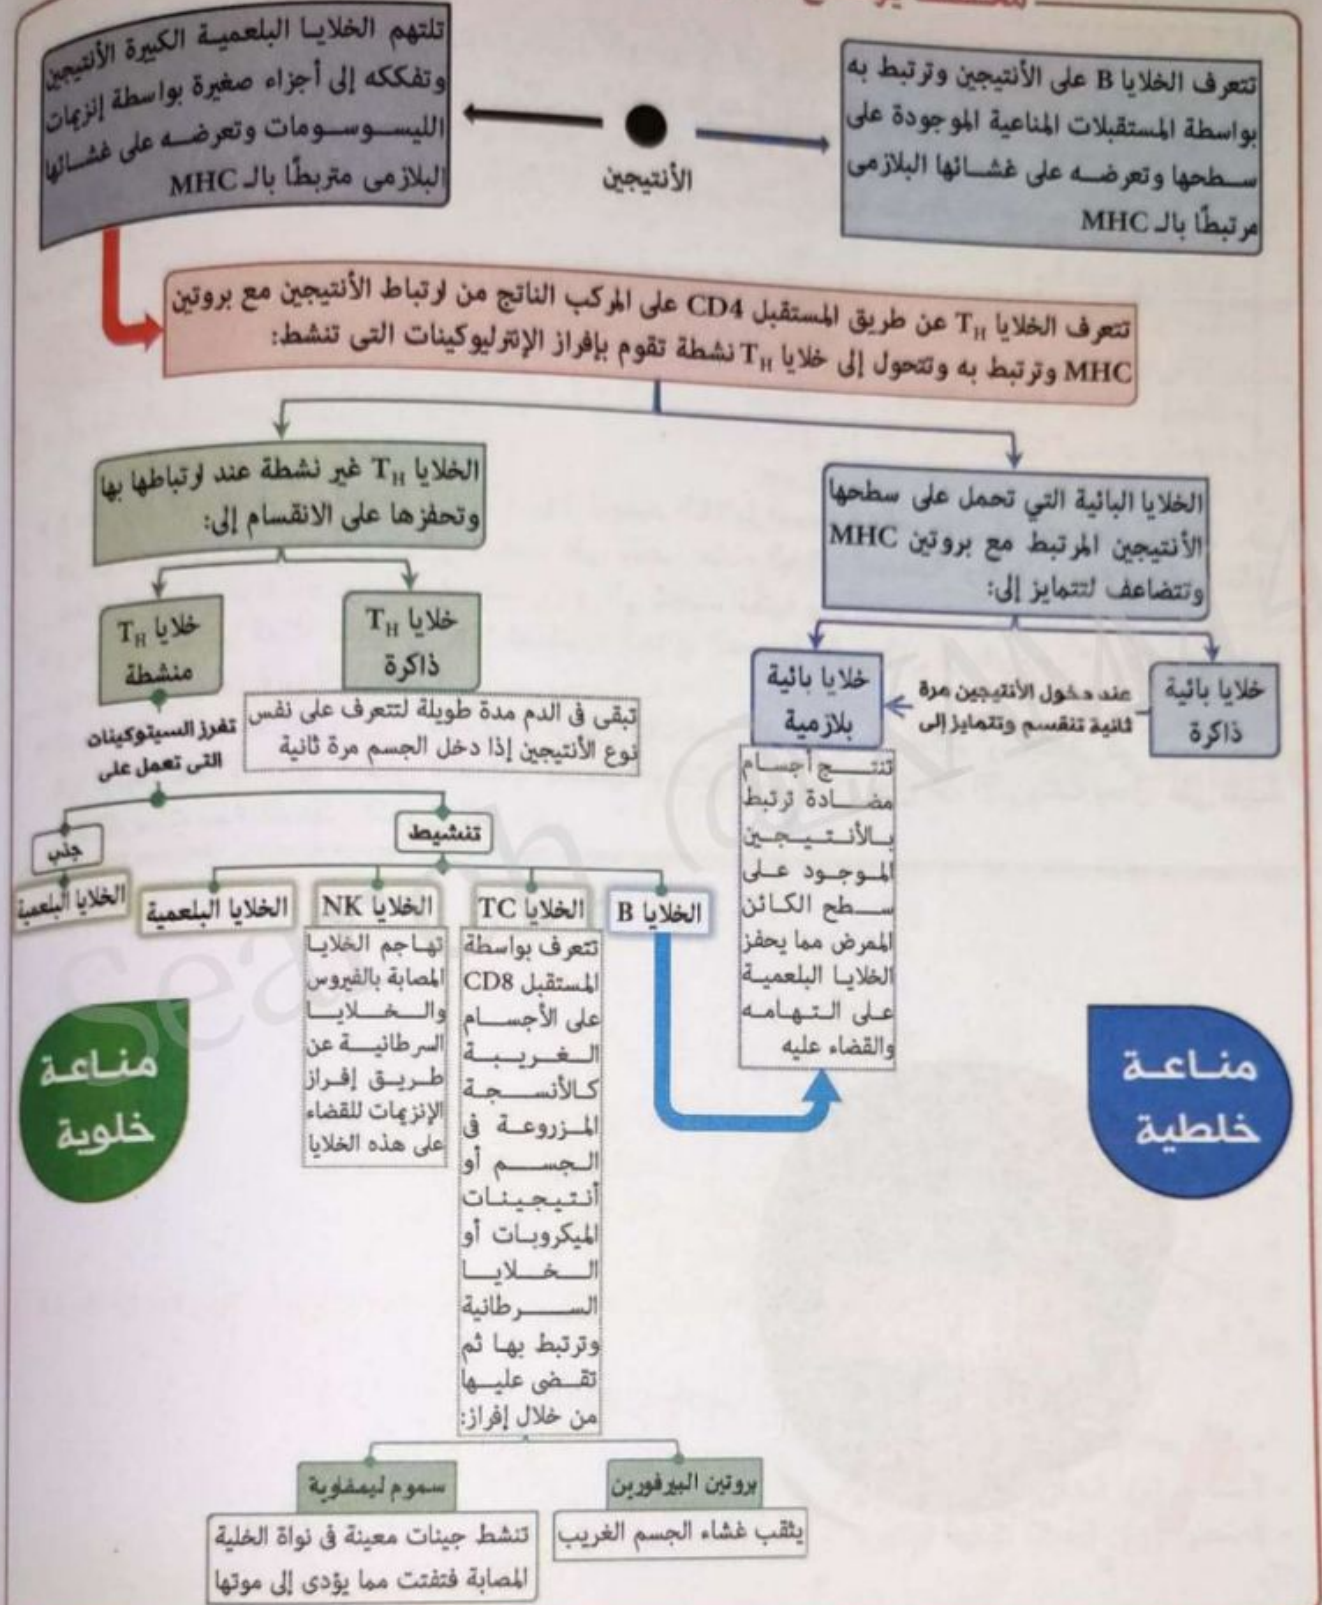 تتعرف الخلايا B على الأنتيجين وترتبط به
بواسطة المستقبلات المناعية الموجودة على
سطحها وتعرضه على غشائها البلازمى
مرتبطًا بالـ MHC
الأنتيجين
تلتهم الخلايا البلعمية الكبيرة الأنتيجين
وتفككه إلى أجزاء صغيرة بواسطة إنزيمات
الليسوسومات وتعرضه على غشائها
البلازمى متربطًا بالـ MHC
تتعرف الخلايا TH عن طريق المستقبل CD4 على المركب الناتج من ارتباط الأنتيجين مع بروتين
MHC وترتبط به وتتحول إلى خلايا TH نشطة تقوم بإفراز الإنترليوكينات التى تنشط:
الخلايا البائية التي تحمل على سطحها
الأنتيجين المرتبط مع بروتين MHC
وتتضاعف لتتمايز إلى:
خلايا بائية
ذاكرة
عند دخول الأنتيجين مرة
ثانية تنقسم وتتمايز إلى
خلايا بائية
بلازمية
تنتج أجسام
مضادة ترتبط
بالأنتيجين
الموجود على
سطح الكائن
الممرض مما يحفز
الخلايا البلعمية
على التهامه
والقضاء عليه
الخلايا TH غير نشطة عند ارتباطها بها
وتحفزها على الانقسام إلى:
خلايا TH
ذاكرة
تبقى فى الدم مدة طويلة لتتعرف على نفس
نوع الأنتيجين إذا دخل الجسم مرة ثانية
خلايا TH
منشطة
تفرز السيتوكينات
التى تعمل على
تنشيط
جذب
الخلايا B
الخلايا TC
تتعرف بواسطة
المستقبل CD8
على الأجسام
الغريبة
كالأنسجة
المزروعة فى
الجسم أو
أنتيجينات
الميكروبات أو
الخلايا
السرطانية
وترتبط بها ثم
تقضى عليها
من خلال إفراز:
الخلايا NK
تهاجم الخلايا
المصابة بالفيروس
والخلايا
السرطانية عن
طريق إفراز
الإنزيمات للقضاء
على هذه الخلايا
الخلايا البلعمية
الخلايا البلعمية
مناعة
خلطية
مناعة
خلوية
بروتين البيرفورين
يثقب غشاء الجسم الغريب
سموم ليمفاوية
تنشط جينات معينة فى نواة الخلية
المصابة فتفتت مما يؤدى إلى موتها